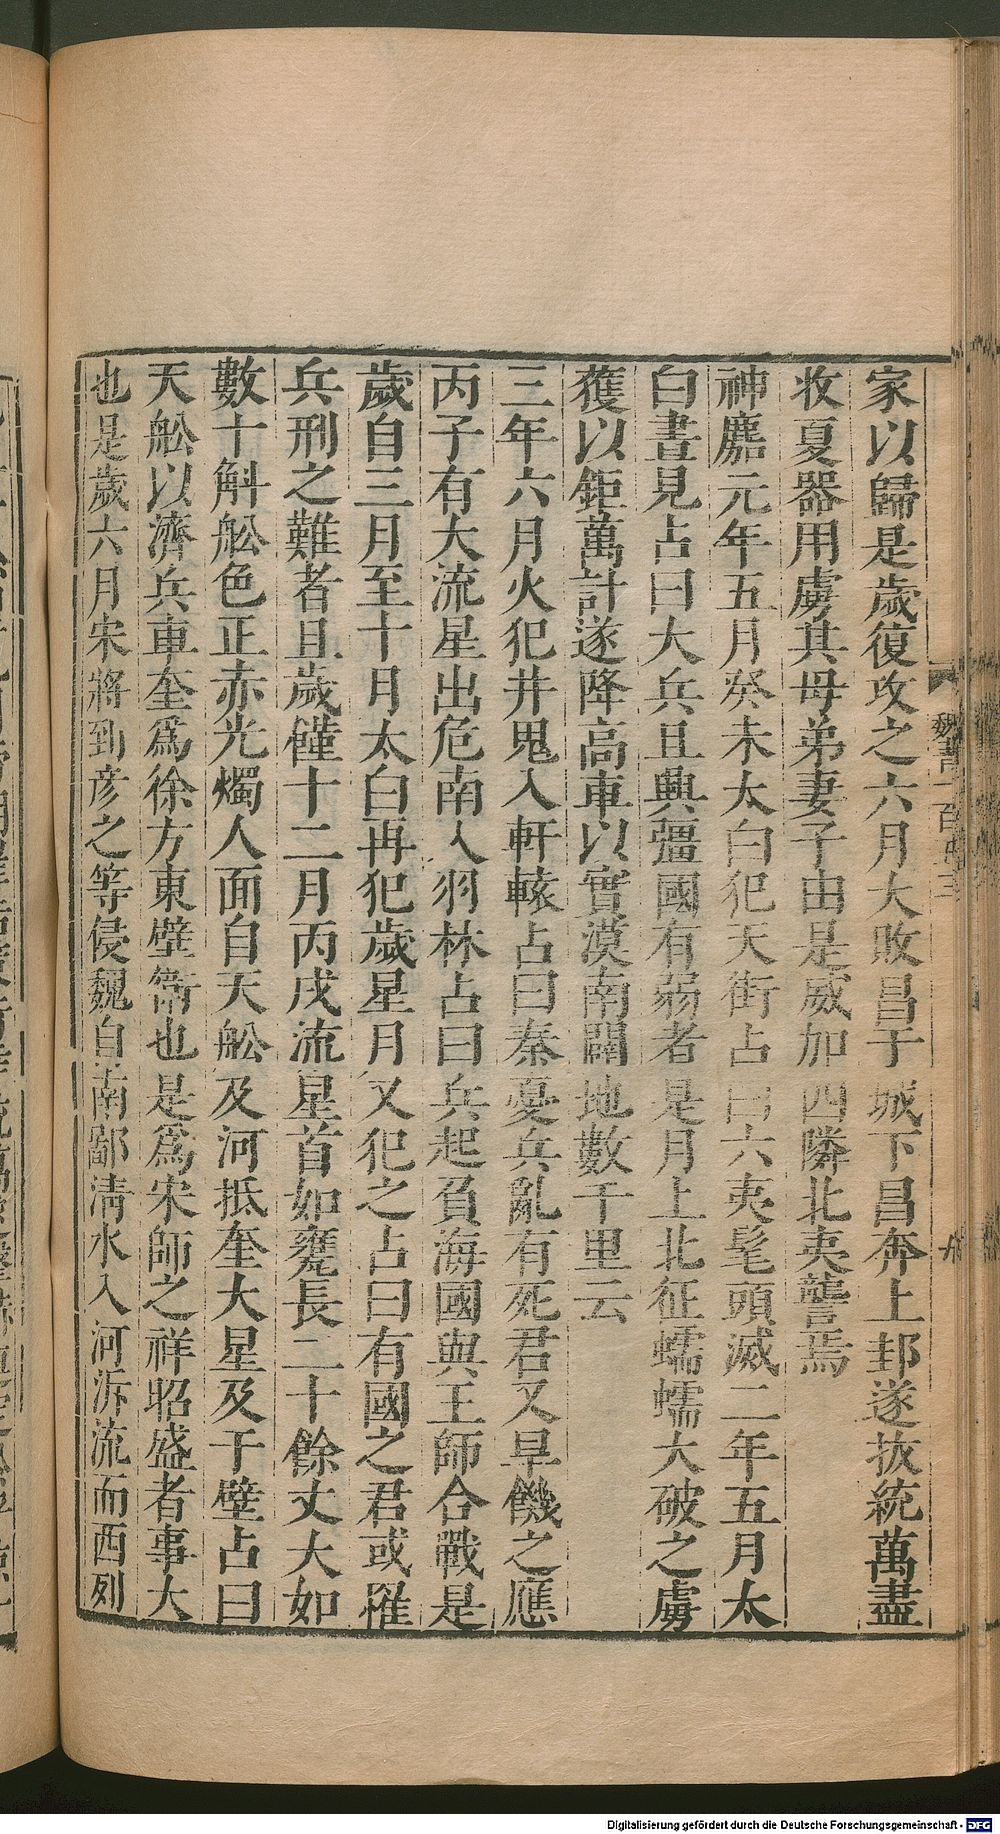 家以歸是歲復攻之六月大敗昌于城下昌奔上邽遂拔統萬盡
收夏器用虜其母弟妻子由是威加四隣北夷讋焉
神䴥元年五月癸未太白犯天街占曰六夷髦頭滅二年五月太
白晝見占曰大兵且興彊國有弱者是月上北征蠕蠕大破之虜
獲以鉅萬計遂降高車以實漠南闢地數千里云
三年六月火犯井鬼入軒轅占曰秦憂兵亂有死君又旱饑之應
丙子有大流星出危南入羽林占曰兵起負海國與王師合戰是
歲自三月至十月太白再犯歲星月又犯之占曰有國之君或罹
兵刑之難者且歲饉十二月丙戌流星首如甕長二十餘丈大如
數十斛舩色正赤光燭人面自天舩及河抵奎大星及于壁占曰
天舩以濟兵車奎爲徐方東壁衞也是爲宋師之祥昭盛者事大
也是歲六月宋將到彦之等侵魏自南鄙淸水入河泝流而西列
魏書一百五三
Digitalisierung gefördert durch die Deutsche Forschungsgemeinschaft - DFG